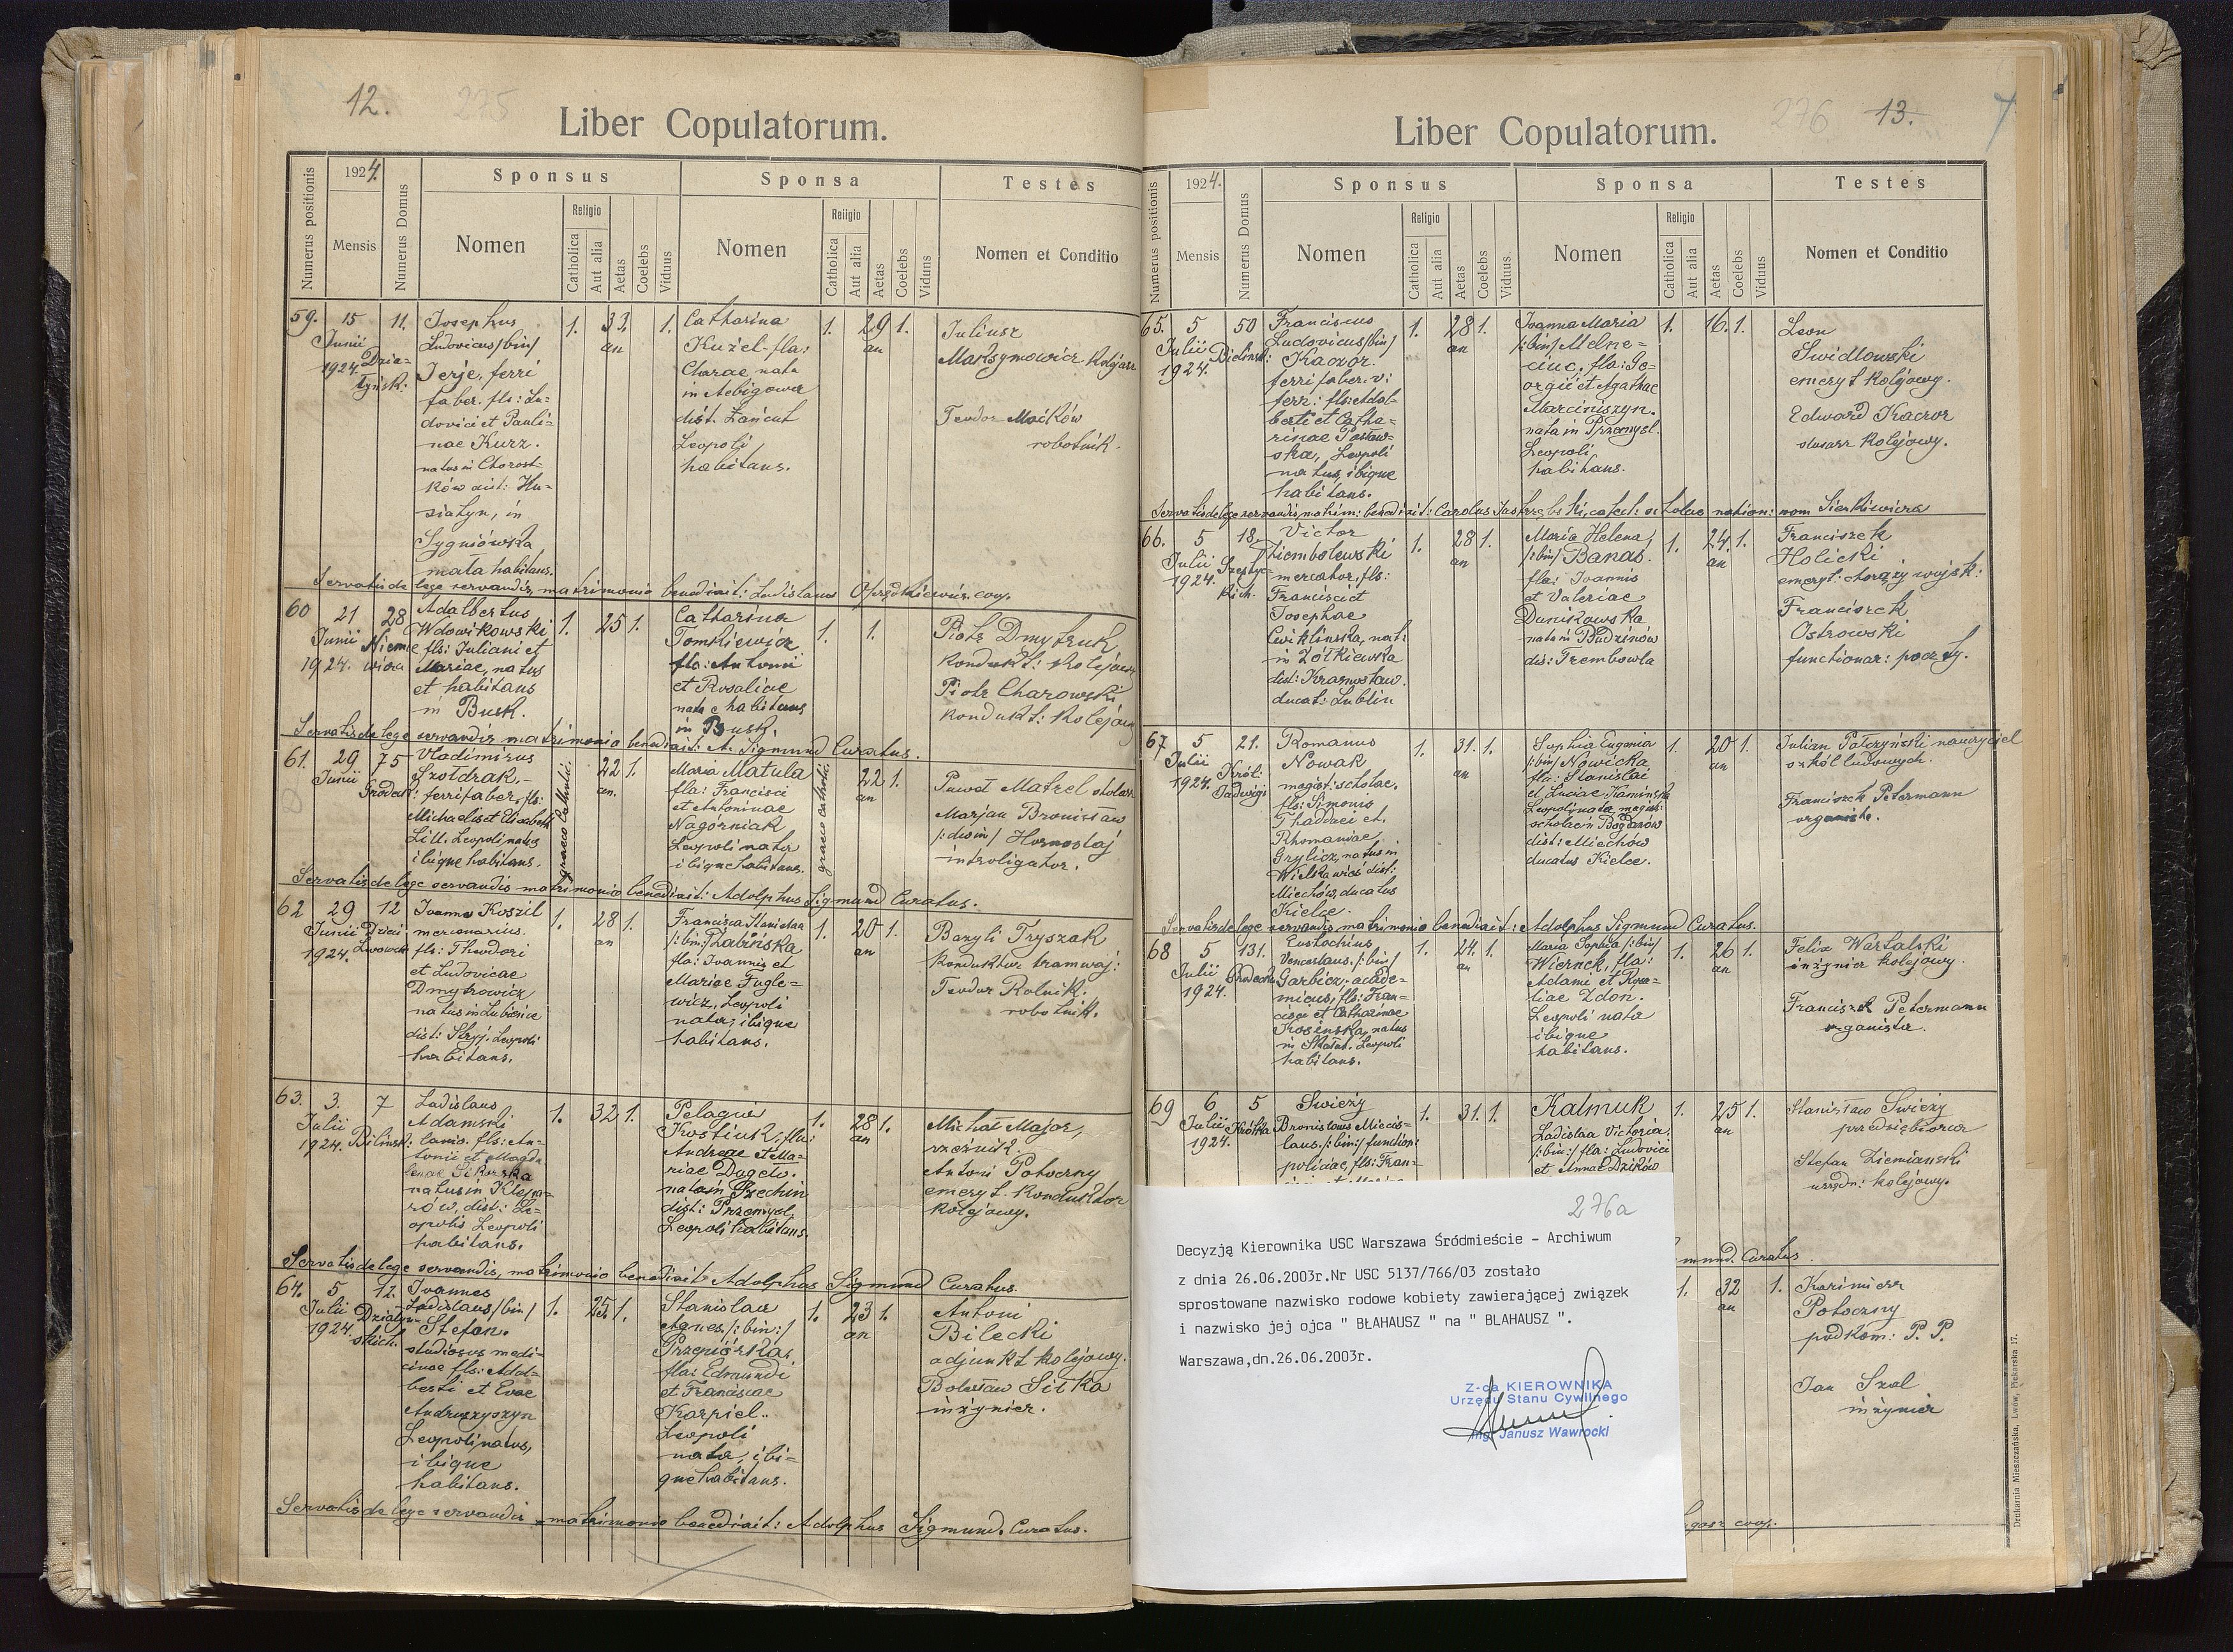 12.
275
Liber Copulatorum.
Numerus positionis
1924.
Mensis
Numerus Domus
Sponsus
Nomen
Religio
Catholica
Aut alia
Aetas
Coelebs
Viduus
Sponsa
Nomen
Religio
Catholica
Aut alia
Aetas
Coelebs
Viduus
Testes
Nomen et Conditio
59.
15
Junii
1924.
11.
Josephus
Ludovicus/bin/
Jerje, ferri
faber. fls: Lu=
dovici et Pauli=
nae Kurz.
natus in Chorost=
ków dist: Hu=
siatyn, in
Sygniówka
mała habitans.
1.
33.
an
1.
Catharina
Kużel fla:
Clarae nata
in
dist. Łańcut
Leopoli
habitans.
1.
29
an
1.
Juliusz
Teodor Maćków
robotnik.
Servatis de lege servandis, matrimonio benedixit: Ladislaus coop.
60
21
Junii
1924.
28
Niemce
wicza
Adalbertus
Wdowikowski
fls: Juliani et
Mariae, natus
et habitans
in Busk.
1.
25
1.
Catharina
Tomkiewicz
fla: Antonii
et Rosaliae
nata habitans
in Busk.
1.
1.
Piotr Dmytruk
kondukt: kolejowy
Piotr Charowski
kondukt: kolejowy
Servatis de lege servandis matrimonio benedixit: A. Sigmund Curatus.
61.
29
Junii
75
Gródeck:
Vladimirus
Szołdrak,
ferri faber, fls:
Michaelis et Elisabeth
Lill. Leopoli natus
ibique habitans.
graeco Catholic.
22
an.
1.
Maria Matula
fla: Francisci
et Antoninae
Nagórniak
Leopoli nata
ibique habitans.
graeco cathol.
22
an
1.
Paweł Matzel stolarz
Marjan Bronisław
Hornostaj
introligator.
Servatis de lege servandis matrimonio benedixit: Adolphus Sigmund Curatus.
62
29
Junii
1924.
12
Dzieci
Lwowsk.
Joannes Koszil
mercenarius.
fls: Theodori
et Ludovicae
Dmytrowicz
natus in Lubience
dist: Stryj. Leopoli
habitans.
1.
28
an
1.
Francisca Stanislaa
/:bin:/ Żabińska
fla: Joannis et
Mariae Fugle=
wicz, Leopoli
nata, ibique
habitans.
1.
20
an
1.
Bazyli Tryszak
konduktor tramwaj:
Teodor Rolnik.
robotnik.
63.
3.
Julii
1924.
7
Bilińsk:
Ladislaus
Adamski
lanio. fls: An=
tonii et Magda
lenae Sikorska
natus in Klepa=
rów, dist: Le=
opolis Leopoli
habitans.
1.
32
1.
Pelagia
Kostiuk, fla:
Andreae et Ma=
riae
nata in
dist: Przemysl,
Leopoli habitans.
1.
28
an
1.
Michał Major,
rzeźnik.
Antoni Potoczny
emeryt. konduktor
kolejowy.
Servatis de lege servandis, matrimonio benedixit: Adolphus Sigmund Curatus.
64.
5
Julii
1924.
12.
Działyń=
skich.
Joannes
Ladislaus /bin/
Stefan.
studiosus medi=
cinae fls: Adal=
berti et Evae
Andruszyszyn
Leopoli natus,
ibique
habitans.
1.
25
1.
Stanislaa
Agnes /:bin:/
Przepiórka,
fla: Edmundi
et Franciscae
Karpiel.
Leopoli
nata, ibi=
que habitans.
1.
23
an
1.
Antoni
Bilecki
adjunkt kolejowy.
Bolesław Sitka
inżynier.
Servatis de lege servandis matrimonio benedixit: Adolphus Sigmund. Curatus.
276
13.
7
Liber Copulatorum.
Numerus positionis
1924.
Mensis
Numerus Domus
Sponsus
Nomen
Religio
Catholica
Aut alia
Aetas
Coelebs
Viduus.
Sponsa
Nomen
Religio
Catholica
Aut alia
Aetas
Coelebs
Viduus
Testes
Nomen et Conditio
65.
5
Julii
1924.
50
Bielińsk:
Franciscus
Ludovicus/bin/
Kaczor
ferri faber. vi:
ferr: fls: Adal=
berti et Catha=
rinae Postaw=
ska, Leopoli
natus, ibique
habitans.
1.
28
an
1.
Joanna Maria
/:bin/ Melne=
ciuc, fla: Ge=
orgii et Agathae
Marciniszyn.
nata in Przemysl.
Leopoli
habitans.
1.
16.
1.
Leon
Swidlowski
emeryt kolejowy.
Edward Kaczor
slusarz kolejowy.
Servatis de lege servandis, matrim: benedixit: Carolus Jastrzębski, catech: scholae nation: nom Sienkiewicza
66.
5
Julii
1924.
18.
Szeptyc=
kich.
Victor
Ziembolewski
mercator, fls:
Francisci et
Josephae
Cwiklinska, nat:
in Żółkiewka
dist: Krasnostaw.
ducat: Lublin
1.
28
an
1.
Maria Helena
/:bin/ Banas.
fla: Joannis
et Valeriae
Danikowska
nata in Budzinów
dis: Trembowla
1.
24.
an
1.
Franciszek
Holicki
emeryt: chorąży wojsk:
Franciszek
Ostrowski
functionar: poczty.
67
5
Julii
1924.
21.
Król:
Jadwigi
Romanus
Nowak
magist: scholae.
fls: Simonis
Thaddaei et
Rhomanae
Grylicz, natus in
dist:
Miechów, ducatus
Kielce.
1.
31.
an
1.
Sophia Eugenia
/:bin/ Nowicka
fla: Stanislai
et Luciae Kamińska
Leopoli nata, magist:
scholae in Bogdanów
dist: Miechów
ducatus Kielce.
1.
20
an
1.
Julian Pałczyński nauczyciel
szkół ludowych.
Franciszek Petermann
organista.
Servatis de lege servandis matrimonio benedixit: Adolphus Sigmund Curatus.
68
5
Julii
1924.
131.
Gródecka
Eustachius
Venceslaus. /:bin/
Garbicz, acade=
micus, fls: Fran=
cisci et Catharinae
Kosinska, natus
in Skałat. Leopoli
habitans.
1.
24.
an
1.
Maria Sophia /:bin/
Wiernek, fla:
Adami et Rosa=
liae Zdon.
Leopoli nata
ibique
habitans.
1.
26
an
1.
Felix Wartalski
inżynier kolejowy.
Franciszek Petermann
organista.
69
6
Julii
1924.
5
Krótka
Swieży
Bronislaus Miecis=
laus. /:bin:/ function:
policiae, fls: Fran=
1.
31.
1.
Kalmuk
Ladislaa Victoria
/:bin:/ fla: Ludovici
et Annae Dzików
1.
25
an
1.
Stanisław Swieży
przedsiębiorca
Stefan Ziemianski
urzędn: kolejowy.
mund. Curatus
1.
32
an
1.
Kazimierz
Potoczny
podkom: P. P.
Jan Szal
inżynier
coop.
276a
Decyzją Kierownika USC Warszawa Śródmieście - Archiwum
z dnia 26.06.2003r.Nr USC 5137/766/03 zostało
sprostowane nazwisko rodowe kobiety zawierającej związek
i nazwisko jej ojca " BŁAHAUSZ " na " BLAHAUSZ ".
Warszawa,dn.26.06.2003r.
Z-ca KIEROWNIKA
Urzędu Stanu Cywilnego
mgr Janusz Wawrocki
Drukarnia Mieszczańska, Lwów, Piekarska 17.